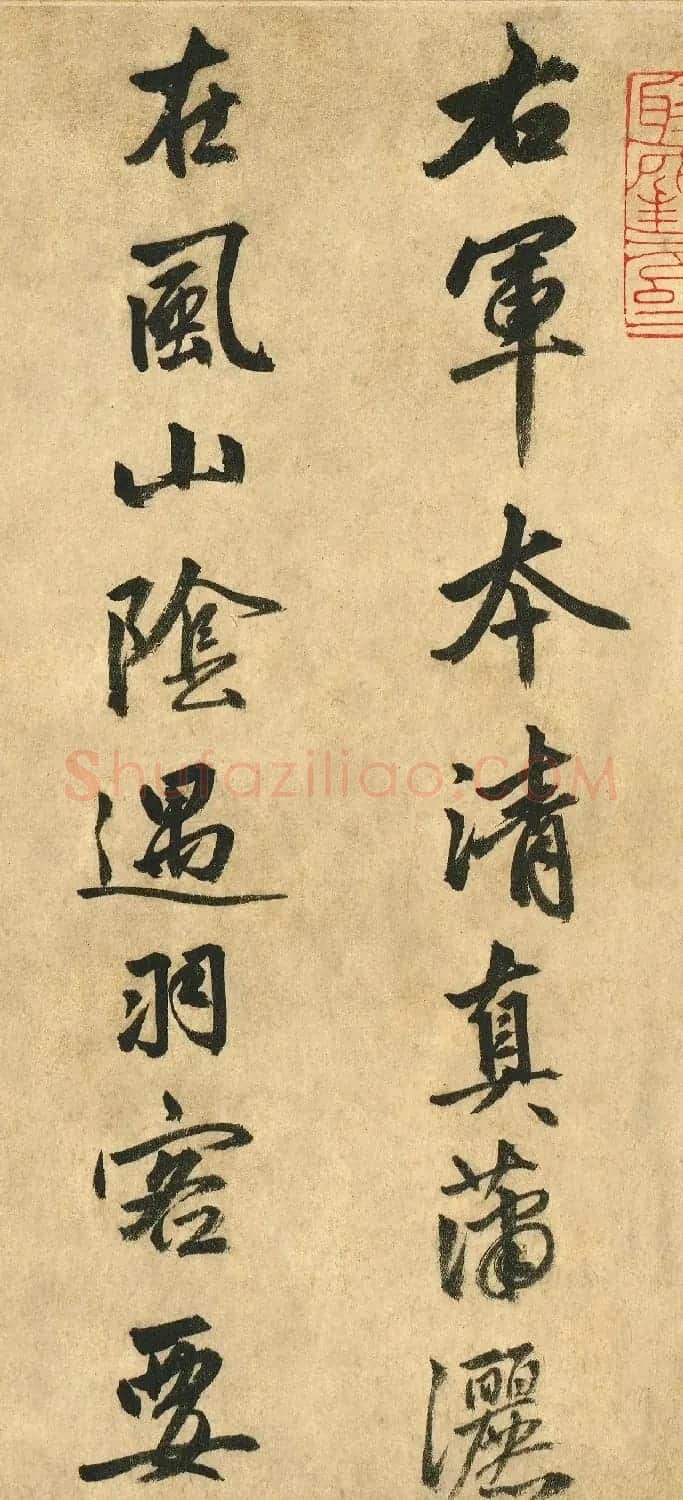 右軍本清真蕭灑
在風山陰遇羽客要
Shufaziliao.COM